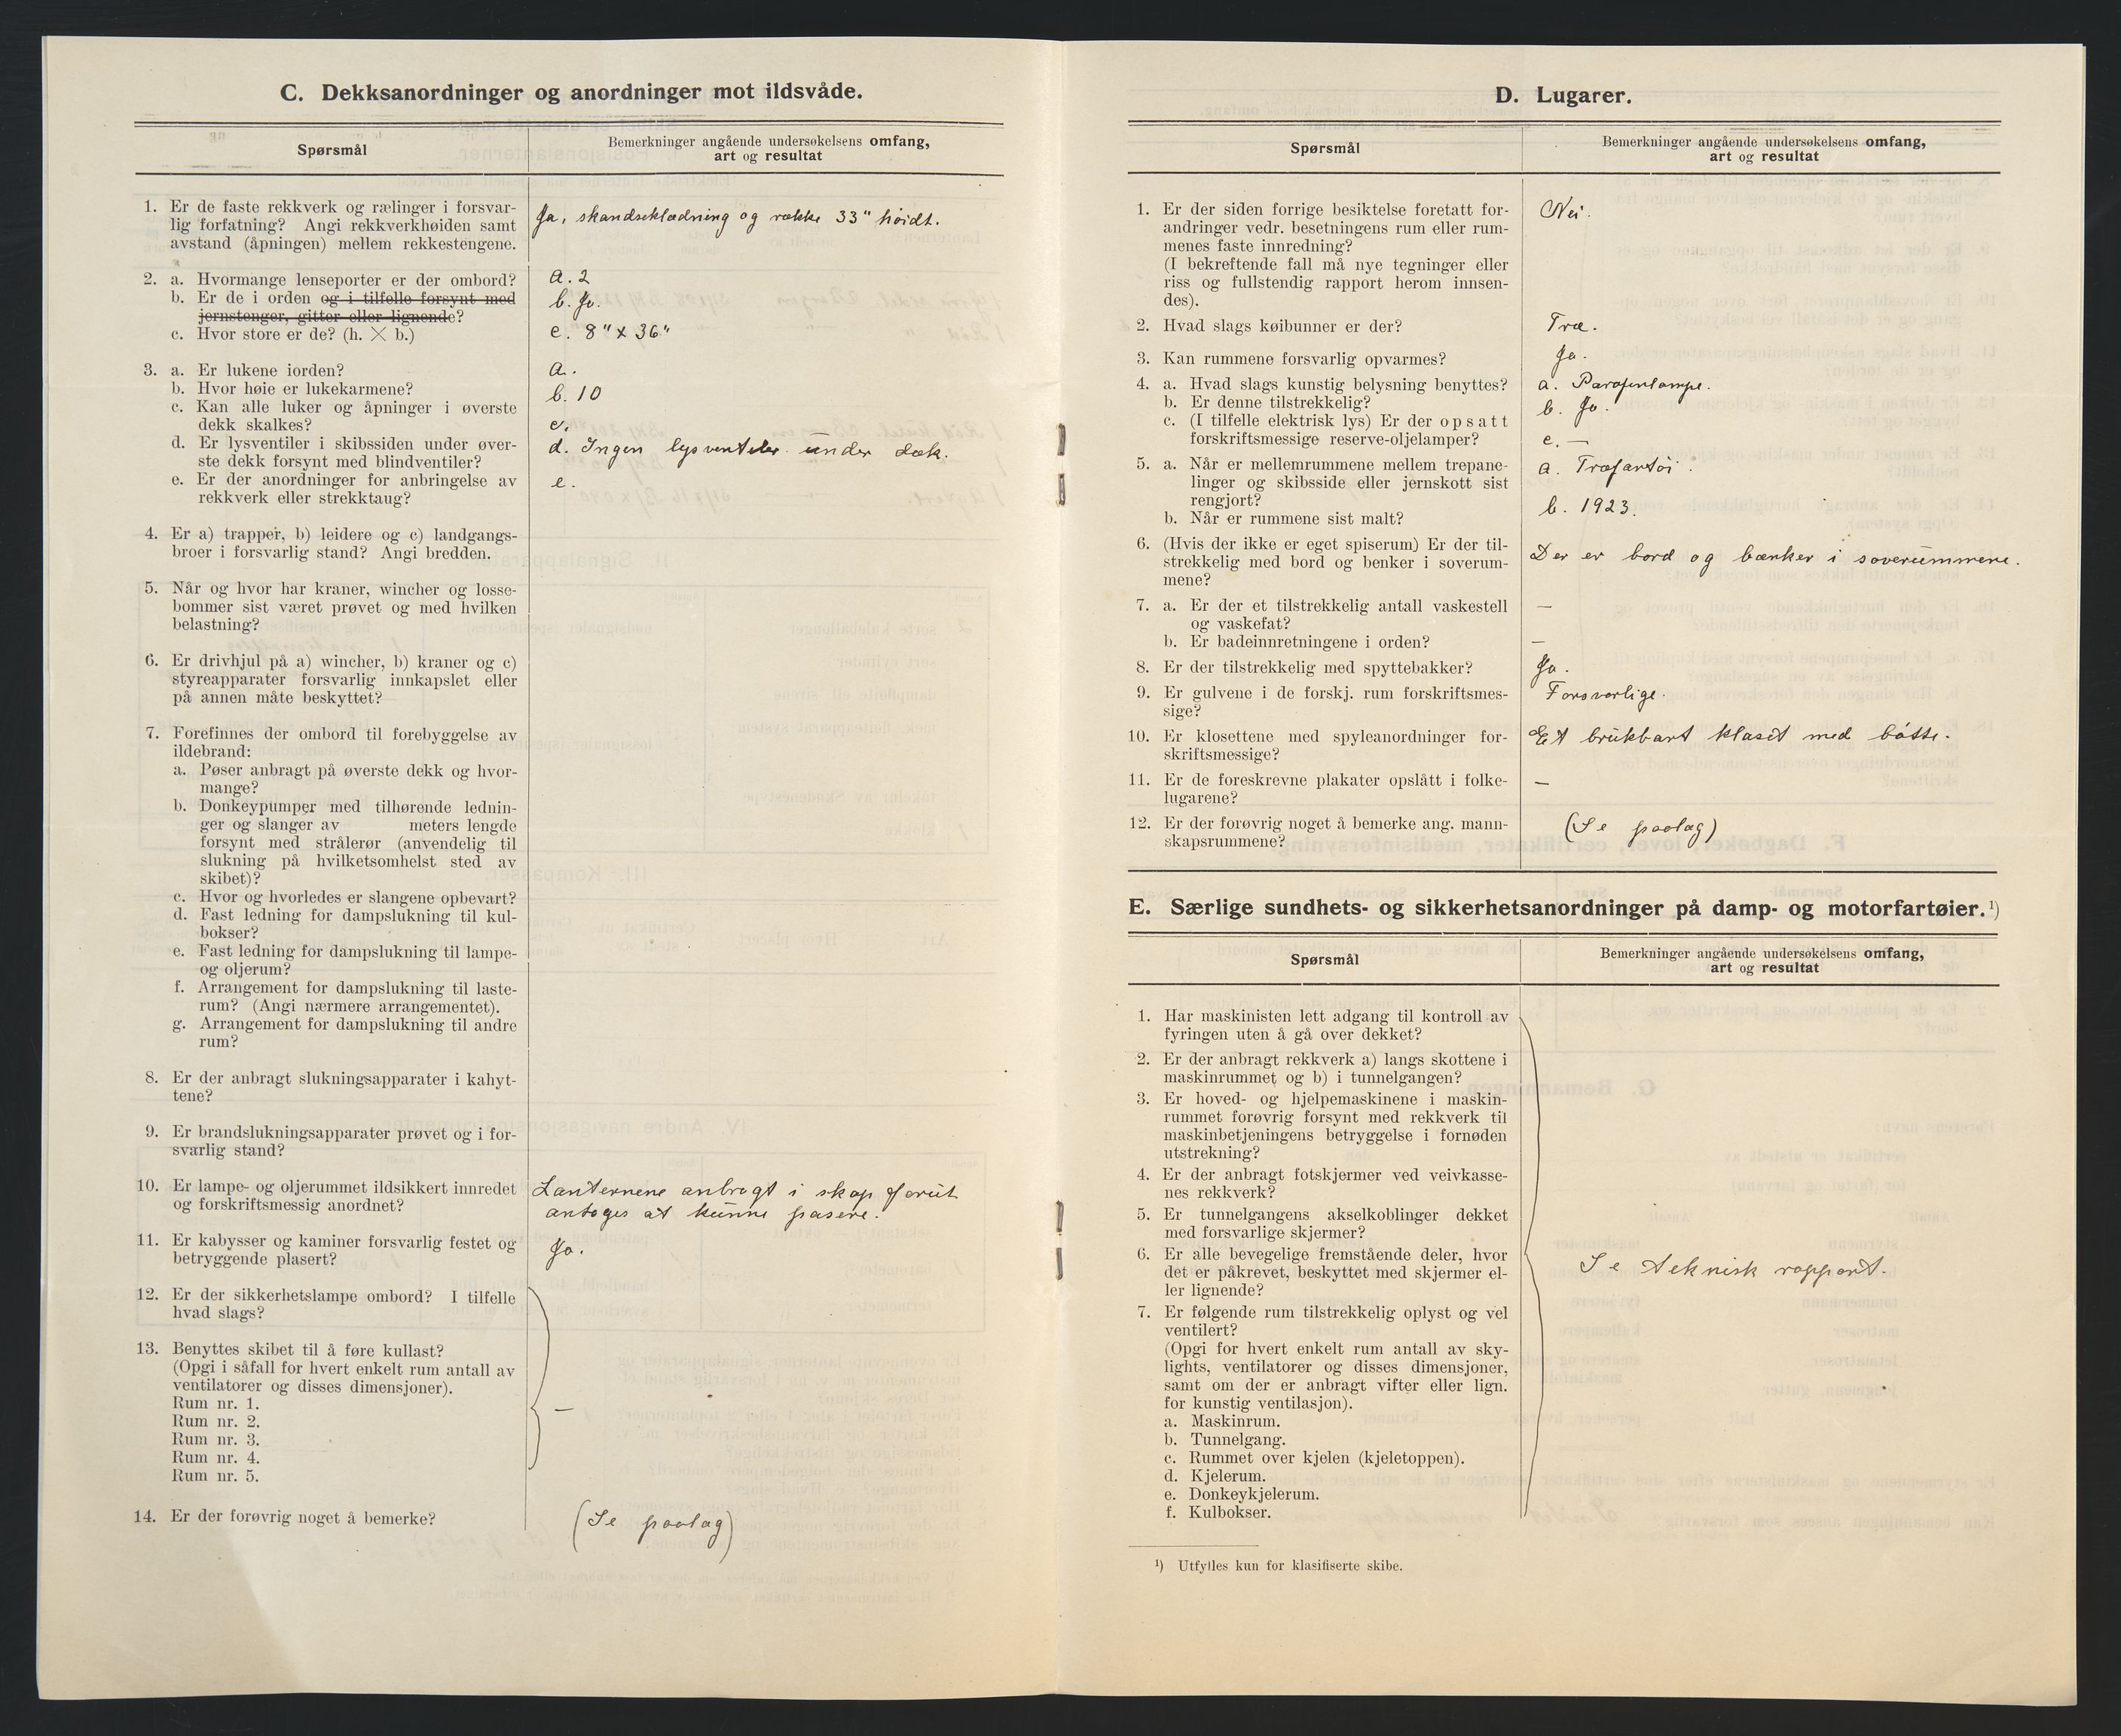 C. Dekksanordninger og anordninger mot ildsvåde.
Spørsmål
Bemerkninger angående undersøkelsens omfang,
art og resultat
1. Er de faste rekkverk og rælinger i forsvar-
lig forfatning? Angi rekkverkhøiden samt
avstand (åpningen) mellem rekkestengene.
Ja, skandseklædning og række 33" høidt.
2. a. Hvormange lenseporter er der ombord?
a. 2
b. Er de i orden og i tilfelle forsynt med
jernstenger, gitter eller lignende?
b. Ja.
c. Hvor store er de? (h. X b.)
c. 8" x 36"
3. a. Er lukene iorden?
a.
b. Hvor høie er lukekarmene?
b. 10
c. Kan alle luker og åpninger i øverste
dekk skalkes?
c.
d. Er lysventiler i skibssiden under øver-
ste dekk forsynt med blindventiler?
d. Ingen lysventiler under dæk.
e. Er der anordninger for anbringelse av
rekkverk eller strekktaug?
e.
4. Er a) trapper, b) leidere og c) landgangs-
broer i forsvarlig stand? Angi bredden.
5. Når og hvor har kraner, wincher og losse-
bommer sist været prøvet og med hvilken
belastning?
6. Er drivhjul på a) wincher, b) kraner og c)
styreapparater forsvarlig innkapslet eller
på annen måte beskyttet?
7. Forefinnes der ombord til forebyggelse av
ildebrand:
a. Pøser anbragt på øverste dekk og hvor-
mange?
b. Donkeypumper med tilhørende lednin-
ger og slanger av meters lengde
forsynt med strålerør (anvendelig til
slukning på hvilketsomhelst sted av
skibet)?
c. Hvor og hvorledes er slangene opbevart?
d. Fast ledning for dampslukning til kul-
bokser?
e. Fast ledning for dampslukning til lampe-
og oljerum?
f. Arrangement for dampslukning til laste-
rum? (Angi nærmere arrangementet).
g. Arrangement for dampslukning til andre
rum?
8. Er der anbragt slukningsapparater i kahyt-
tene?
9. Er brandslukningsapparater prøvet og i for-
svarlig stand?
10. Er lampe- og oljerummet ildsikkert innredet
og forskriftsmessig anordnet?
Lanternene anbragt i skap forut
antages at kunne pasere.
11. Er kabysser og kaminer forsvarlig festet og
betryggende plasert?
Ja.
12. Er der sikkerhetslampe ombord? I tilfelle
hvad slags?
13. Benyttes skibet til å føre kullast?
(Opgi i såfall for hvert enkelt rum antall av
ventilatorer og disses dimensjoner).
Rum nr. 1.
Rum nr. 2.
Rum nr. 3.
Rum nr. 4.
Rum nr. 5.
—
14. Er der forøvrig noget å bemerke?
(Se paalag)
D. Lugarer.
Spørsmål
Bemerkninger angående undersøkelsens omfang,
art og resultat
1. Er der siden forrige besiktelse foretatt for-
andringer vedr. besetningens rum eller rum-
menes faste innredning?
(I bekreftende fall må nye tegninger eller
riss og fullstendig rapport herom innsen-
des).
Nei.
2. Hvad slags køibunner er der?
Træ.
3. Kan rummene forsvarlig opvarmes?
Ja.
4. a. Hvad slags kunstig belysning benyttes?
a. Parafinlampe.
b. Er denne tilstrekkelig?
b. Ja.
c. (I tilfelle elektrisk lys) Er der opsatt
forskriftsmessige reserve-oljelamper?
c. —
5. a. Når er mellemrummene mellem trepane-
linger og skibsside eller jernskott sist
rengjort?
a. Træfartøi.
b. Når er rummene sist malt?
b. 1923.
6. (Hvis der ikke er eget spiserum) Er der til-
strekkelig med bord og benker i soverum-
mene?
Der er bord og bænker i soverummene.
7. a. Er der et tilstrekkelig antall vaskestell
og vaskefat?
—
b. Er badeinnretningene i orden?
—
8. Er der tilstrekkelig med spyttebakker?
Ja.
9. Er gulvene i de forskj. rum forskriftsmes-
sige?
Forsvarlige.
10. Er klosettene med spyleanordninger for-
skriftsmessige?
Et brukbart klaset med bøtte.
11. Er de foreskrevne plakater opslått i folke-
lugarene?
—
12. Er der forøvrig noget å bemerke ang. mann-
skapsrummene?
(Se paalag)
E. Særlige sundhets- og sikkerhetsanordninger på damp- og motorfartøier.¹)
Spørsmål
Bemerkninger angående undersøkelsens omfang,
art og resultat
1. Har maskinisten lett adgang til kontroll av
fyringen uten å gå over dekket?
2. Er der anbragt rekkverk a) langs skottene i
maskinrummet og b) i tunnelgangen?
3. Er hoved- og hjelpemaskinene i maskin-
rummet forøvrig forsynt med rekkverk til
maskinbetjeningens betryggelse i fornøden
utstrekning?
4. Er der anbragt fotskjermer ved veivkasse-
nes rekkverk?
5. Er tunnelgangens akselkoblinger dekket
med forsvarlige skjermer?
6. Er alle bevegelige fremstående deler, hvor
det er påkrevet, beskyttet med skjermer el-
ler lignende?
Se teknisk rapport.
7. Er følgende rum tilstrekkelig oplyst og vel
ventilert?
(Opgi for hvert enkelt rum antall av sky-
lights, ventilatorer og disses dimensjoner,
samt om der er anbragt vifter eller lign.
for kunstig ventilasjon).
a. Maskinrum.
b. Tunnelgang.
c. Rummet over kjelen (kjeletoppen).
d. Kjelerum.
e. Donkeykjelerum.
f. Kulbokser.
¹) Utfylles kun for klasifiserte skibe.